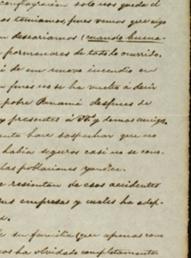 conflagración solo nos queda el
os temiamos, pues vemos que sigo
n desearíamos! cuando buena-
pormenores de todo lo ocurrido,
i de un nuevo incendio en
fuese no se ha vuelto a decir
pobre Panamá despues de
y presentes á Vd. y demas amigos,
hace sospechar que no
había seguros casi no se cono-
las poblaciones
resientan de esos accidentes
sus empresas y cuales ha adop-
de su familia que apenas cono
nos ha olvidado completamente